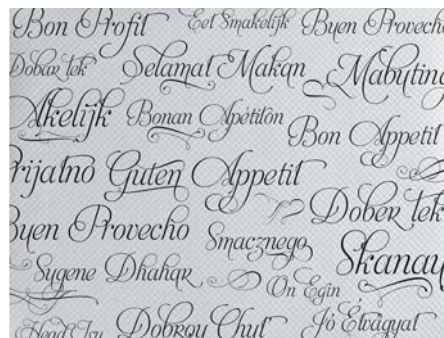 Bon Profit Eet Smakelijk Buen Provecho
Dobar tek Selamat Makan Mabuting
Akelijk Bonan Apétitôn Bon Appetit
Prijatno Guten Appetit Dober tek
Buen Provecho Smacznego Skanau
Sygene Dhahar On Egin
Dobrou Chuť Jó Étvágyat